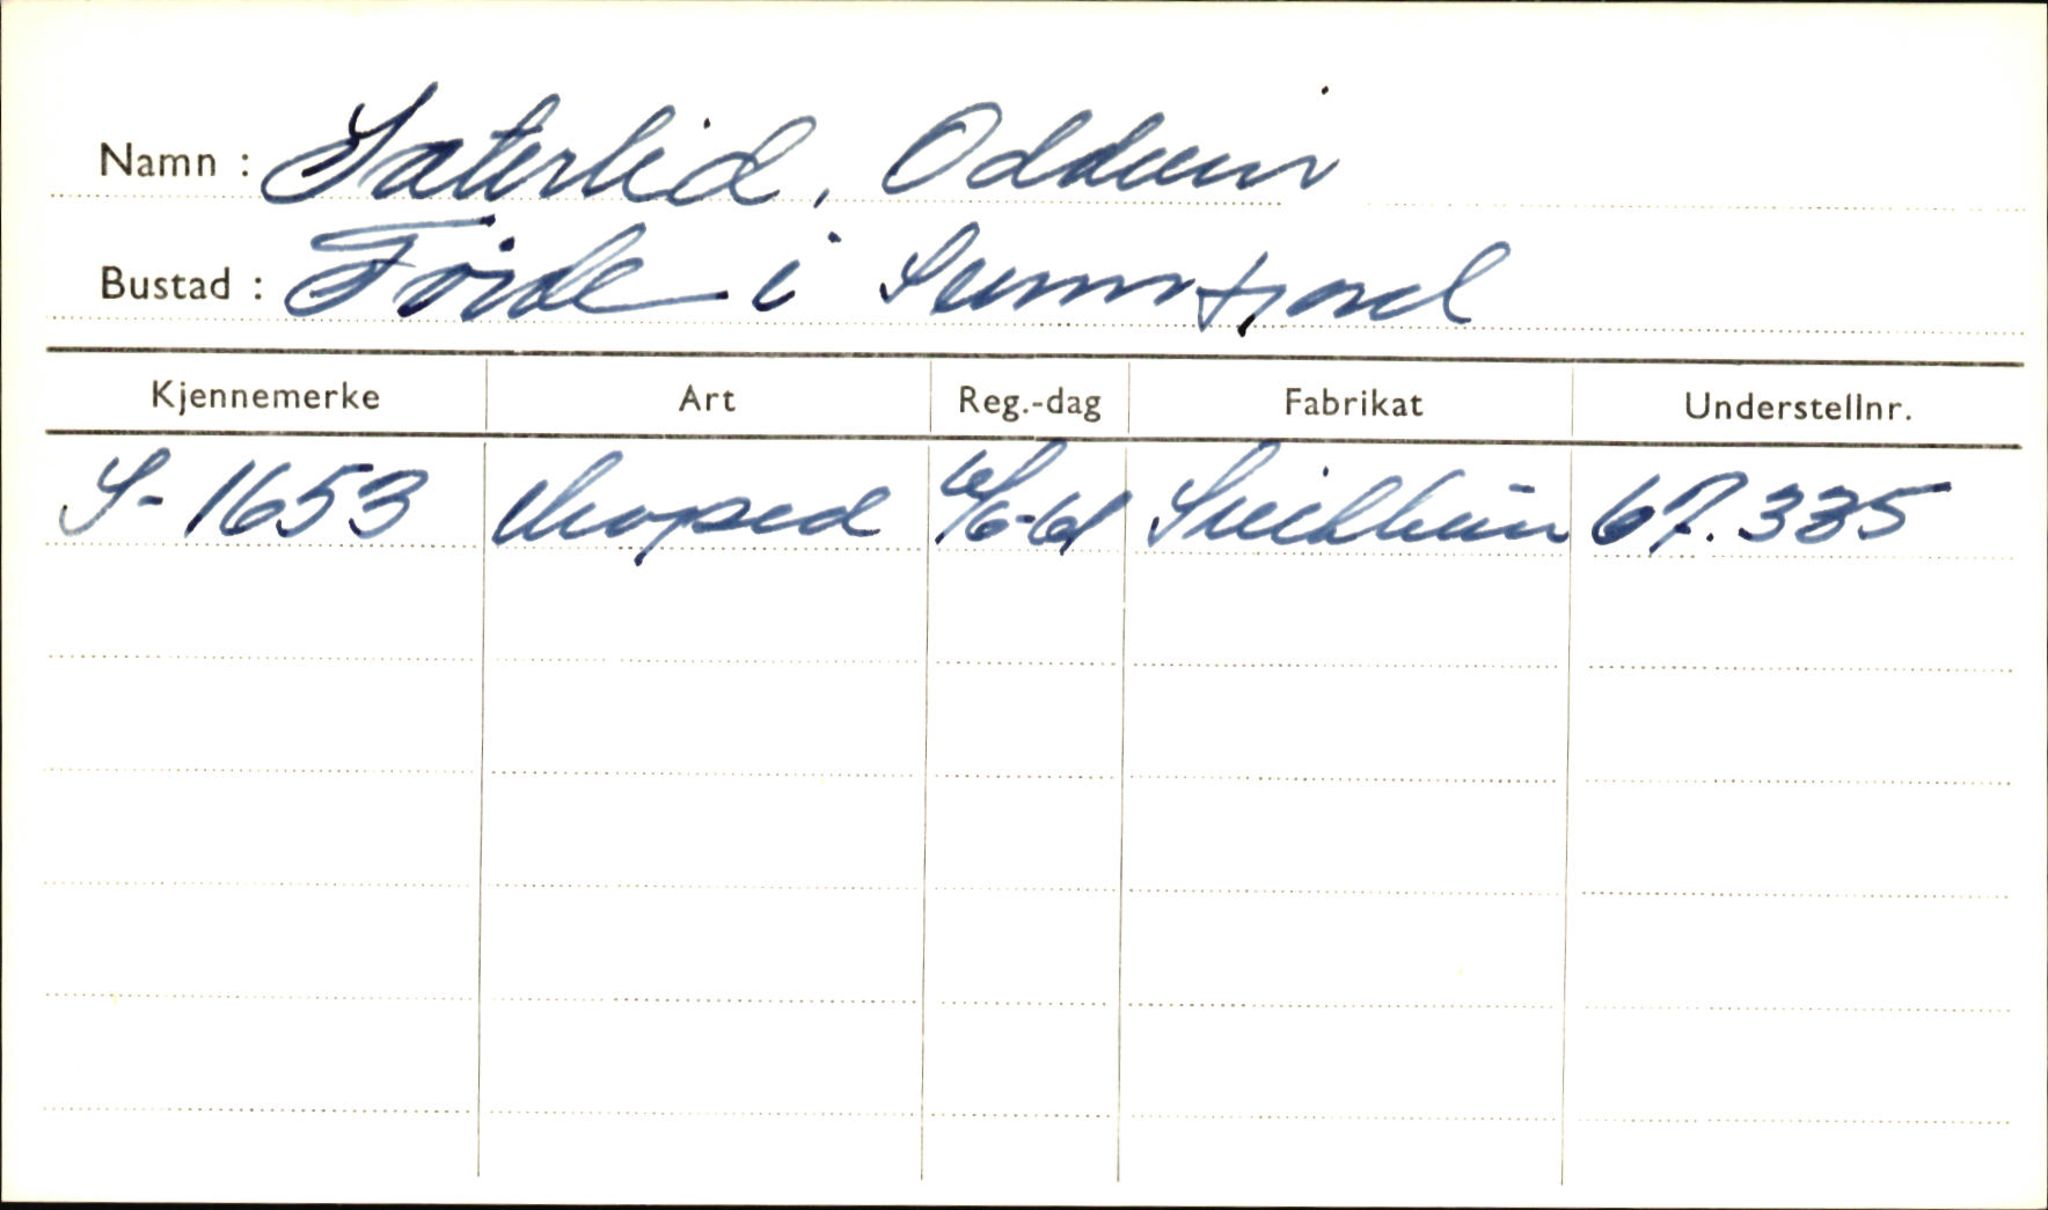 Namn : Sæterlid, Oddvin
Bustad : Förde i Sunnfjord
Kjennemerke Art Reg.-dag Fabrikat Understellnr.
S-1653 Moped 67.335